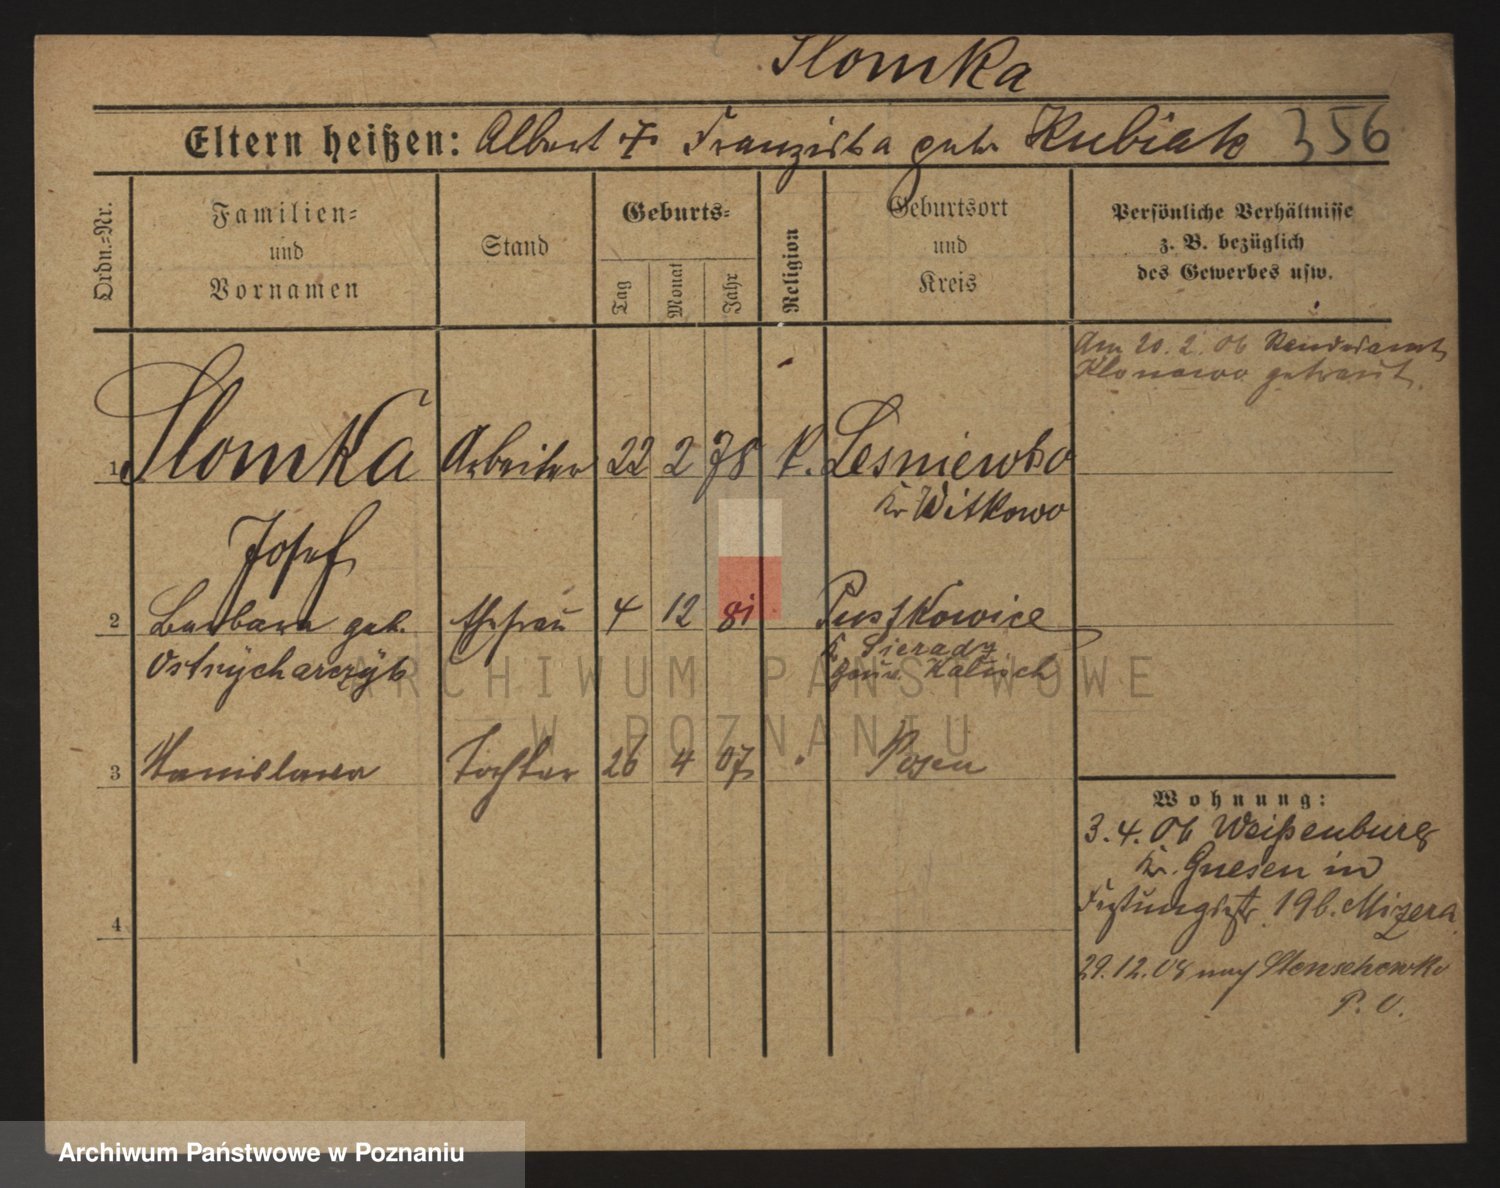 Slomka
Eltern heißen: Albert † Franziska geb. Kubiak 356
Ordn.=Nr.
Familien=
und
Vornamen
Stand
Geburts=
Tag
Monat
Jahr
Religion
Geburtsort
und
Kreis
Persönliche Verhältnisse
z. B. bezüglich
des Gewerbes usw.
Am 20. 2. 06 Standesamt
Klonowo getraut.
1 Slomka Arbeiter 22 2 78 K. Lesniewko
Kr Witkowo
Josef
2 Barbara geb. Ehefrau 4 12 81 Pustkowice
K. Sieradz
Ostrycharczyk Gouv. Kalisch
3 Stanislawa Tochter 26 4 07 Posen
4
Wohnung:
3. 4. 06 Weißenburg
Kr. Gnesen in
Festungsstr. 19 b. Mizera
29. 12. 08 nach Stenschewko
P. O.
ARCHIWUM PAŃSTWOWE
W POZNANIU
Archiwum Państwowe w Poznaniu